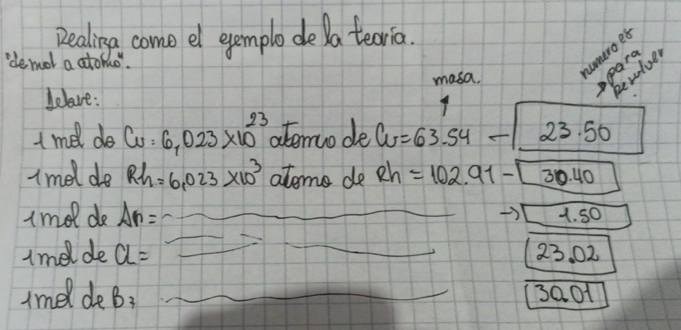 Realiza como el ejemplo de la teoria.
"de mol a atomo".
masa.
numeros para resolver
clave:
1 mol de Cu = 6,023 x 10²³ atomo de Cu = 63.54 — 23.50
1 mol de Rh = 6,023 x 10³ atomo de Rh = 102.91 - 30.40
1 mol de An = → 1.50
1 mol de Cl = 23.02
1 mol de B: 30.01